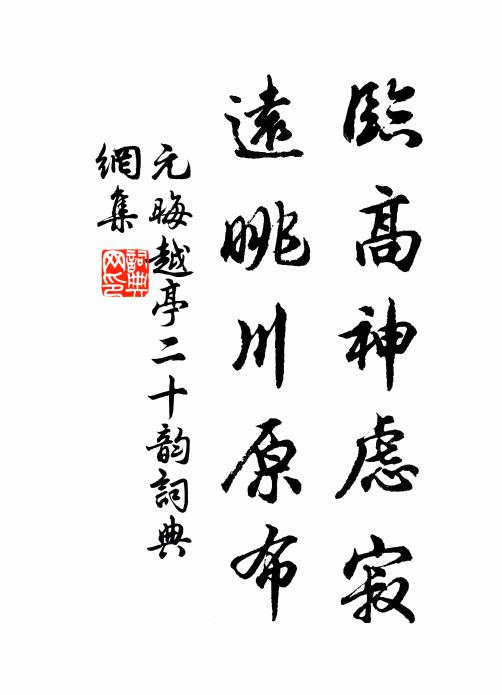 臨高神慮寂
遠眺川原布
元晦越亭二十韵詞典
網集
詞典網印